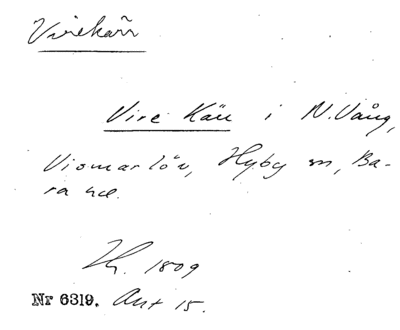 Virekärr
Vire Kärr i N. Vång,
Vismarlöv, Hyby sn, Ba-
ra hd.
1809
Nr 6319. Akt 15.